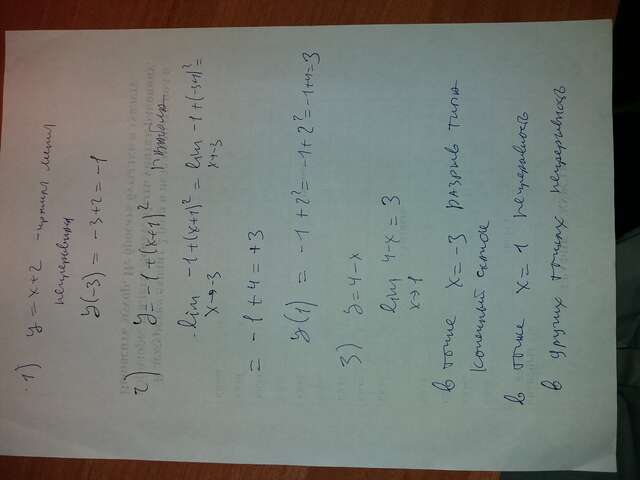 1) y = x+2 - прямая линия
непрерывна
y(-3) = -3+2 = -1
2) y = -1+(x+1)² парабола
lim -1+(x+1)² = lim -1+(-3+1)² =
x→-3 x→-3
= -1+4 = +3
y(1) = -1+2² = -1+2² = -1+4 = 3
3) y = 4-x
lim 4-x = 3
x→1
в точке x = -3 разрыв типа
конечный скачок
в точке x = 1 непрерывность
в других точках непрерывность